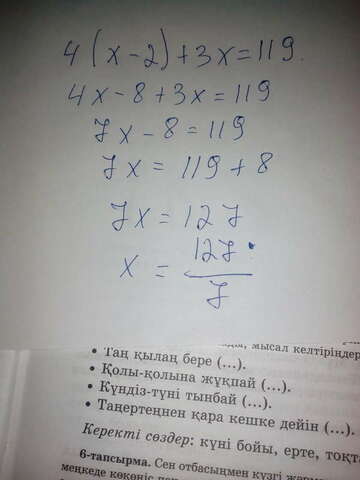 4(x-2)+3x=119.
4x-8+3x=119
7x-8=119
7x = 119+8
7x = 127
x = 127/7
мысал келтіріңдер
• Таң қылаң бере (...).
• Қолы-қолына жұқпай (...).
• Күндіз-түні тынбай (...).
• Таңертеңнен қара кешке дейін (...).
Керекті сөздер: күні бойы, ерте, тоқта
6-тапсырма. Сен отбасыңмен күзгі жәрм